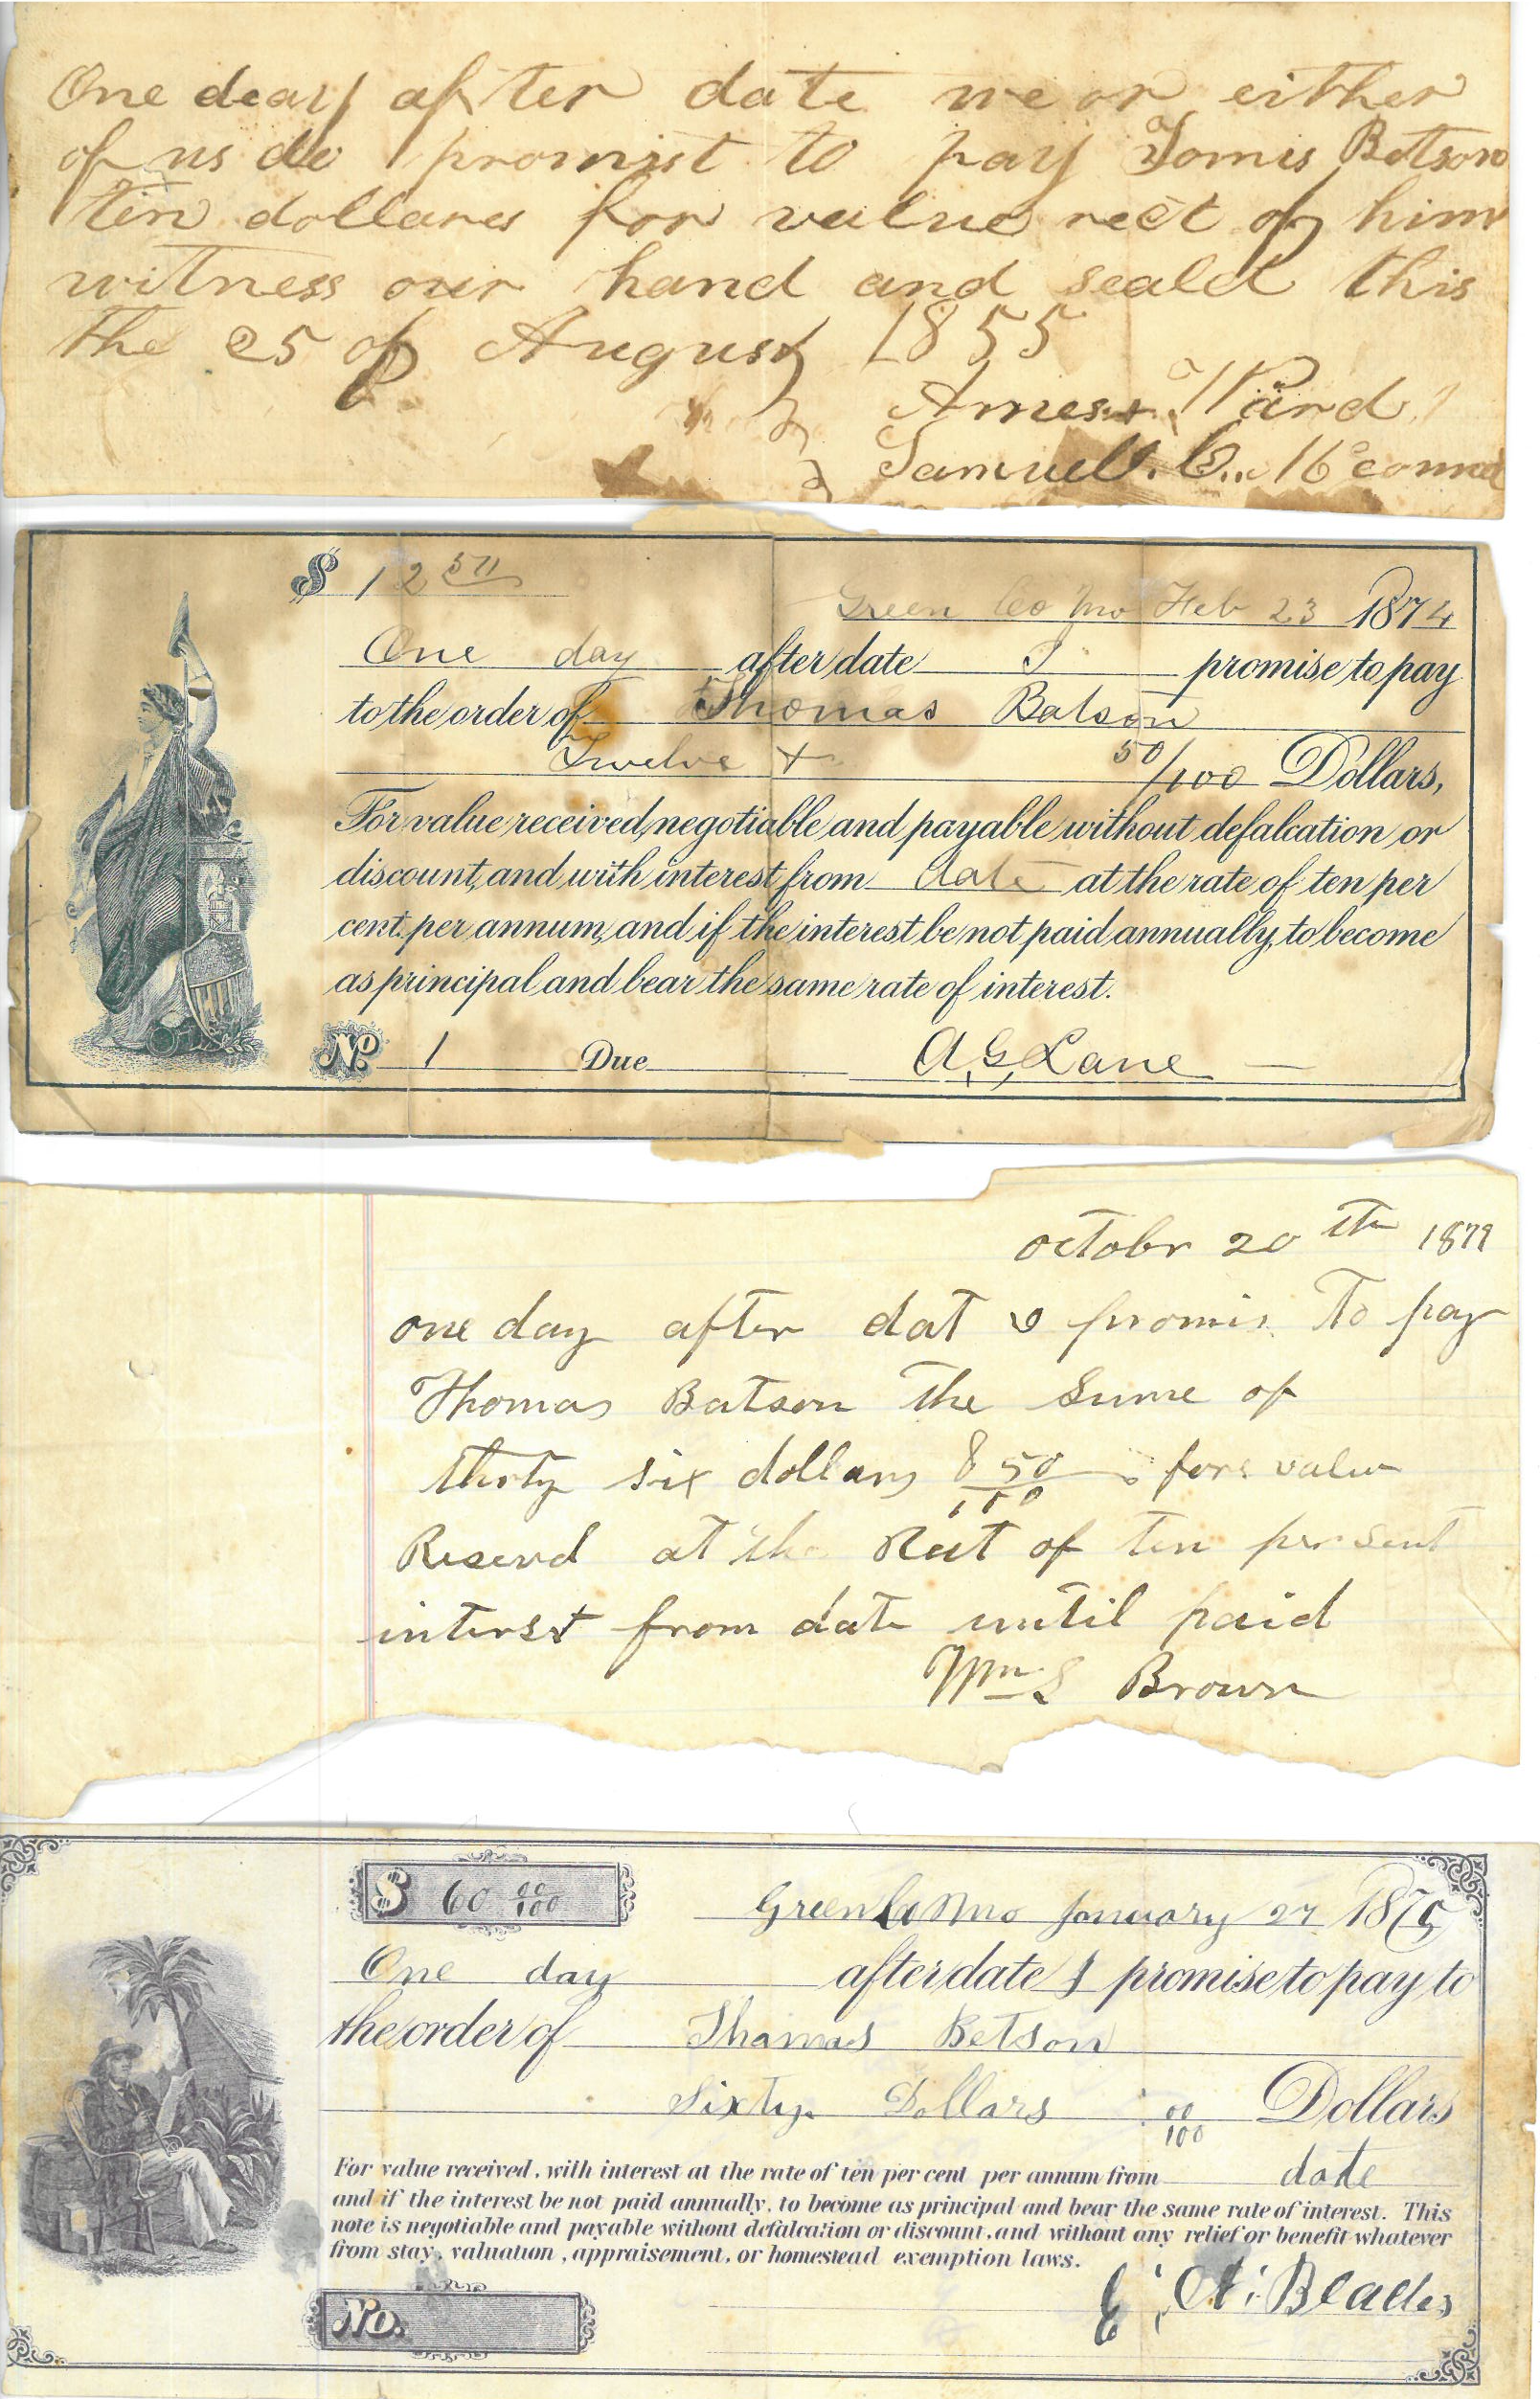 One deay after date we or either
of us do promist to pay Tomis Betson
ten dollares for value rect of him
witness our hand and seald this
the 25 of August 1855
Ward
Samuel
$ 12 50
Green Co Mo Feb 23 1874
One day after date I promise to pay
to the order of Thomas Batson
Twelve + 50/100 Dollars,
For value received, negotiable and payable without defalcation or
discount, and with interest from date at the rate of ten per
cent. per annum, and if the interest be not paid annually, to become
as principal and bear the same rate of interest.
No. 1 Due A. G. Lane
octobr 20th 1879
one day after dat I promis to pay
Thomas Batson the sume of
thirty six dollars & 50/100 for value
Reserved at the Reat of ten per sent
interst from date until paid
Wm S Brown
$ 60 00/100
Green Co Mo January 27 1875
One day after date I promise to pay to
the order of Thamas Betson
Sixty Dollars 00/100 Dollars
For value received, with interest at the rate of ten per cent per annum from date
and if the interest be not paid annually, to become as principal and bear the same rate of interest. This
note is negotiable and payable without defalcation or discount, and without any relief or benefit whatever
from stay, valuation, appraisement, or homestead exemption laws.
Blades
No.